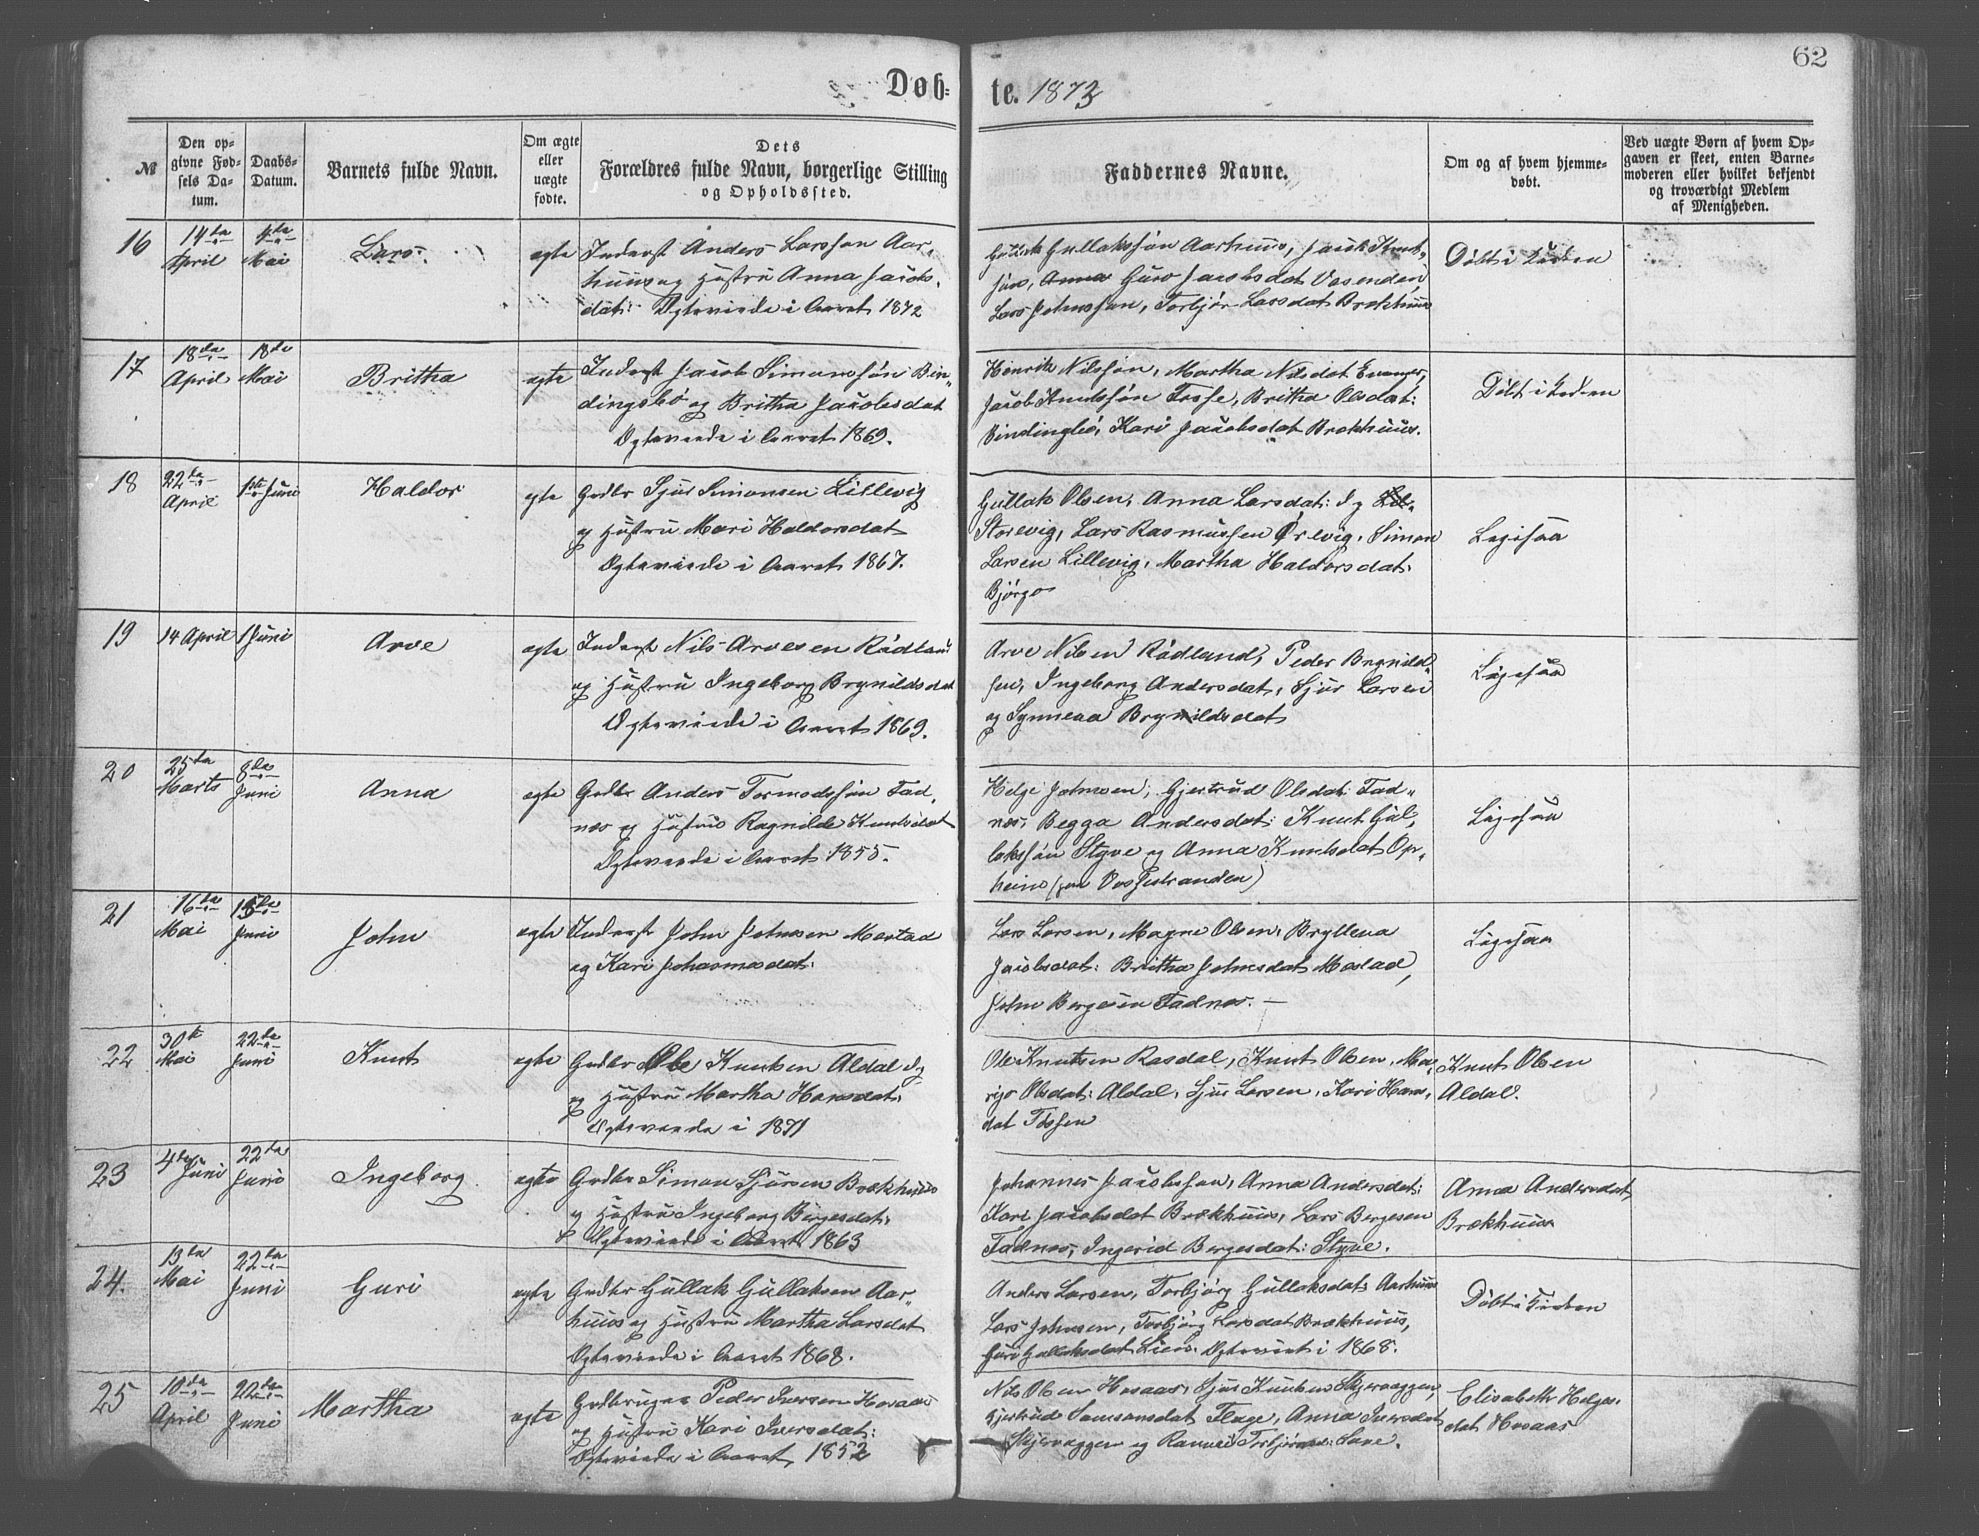 62
Døb-
te. 1873
№
Den op-
givne Fød-
sels Da-
tum.
Daabs-
Datum.
Barnets fulde Navn.
Om ægte
eller
uægte
fødte.
Dets
Forældres fulde Navn, borgerlige Stilling
og Opholdssted.
Faddernes Navne.
Om og af hvem hjemme-
døbt.
Ved uægte Børn af hvem Op-
gaven er skeet, enten Barne-
moderen eller hvilket bekjendt
og troværdigt Medlem
af Menigheden.
16
14de
April
4de
Mai
Lars
ægte
Inderst Anders Larssøn Aar-
huus og Hustru Anna Jacobs-
dat: Ægteviede i Aaret 1872
Gullak Gullakssøn Aarhuus, Jacob Knut-
søn, Guro Jacobsdat Vasenden
Lars Johnssøn, Torbjør Larsdat Brækhuus
Døbt i Kirken
17
18de
April
18de
Mai
Britha
ægte
Inderst Jacob Simonssøn Bin-
dingsbø og Britha Jacobsdat
Ægteviede i Aaret 1869.
Henrik Nilssøn, Martha Nilsdat Evanger,
Jacob Knudssøn Fosse, Britha Olsdat:
Bindingbø, Kari Jacobsdat Brækhuus.
Døbt i Kirken
18
22de
April
1ste Juni
Haldor
ægte
Grdbr Sjur Simonsen Lillevig
og Hustru Mari Haldorsdat
Ægteviede i Aaret 1867.
Gullak Olsen, Anna Larsdat: Ig
Storevig, Lars Rasmussen Ørevig, Simon
Larsen Lillevig, Martha Haldorsdat:
Bjørgo
Ligesaa
19
14 April
1 Juni
Arve
ægte
Inderst Nils Arvesen Rødland
og Hustru Ingeborg Brynildsdat
Ægteviede i Aaret 1869.
Arve Nilsen Rødland, Peder Brynild-
sen, Ingeborg Andersdat, Sjur Larsen
og Synneva Brynildsdat
Ligesaa
20
25de
Marts
8de
Juni
Anna
ægte
Grdbr Anders Tormodssøn Fad-
nes og Hustru Ragnilde Knutsdat
Ægteviede i Aaret 1855.
Helje Johnsen, Gjertrud Olsdat: Fad-
nes, Begga Andersdat: Knut Gul-
lakssøn Styve og Anna Knutsdat Op-
heim (paa Vossestranden)
Ligesaa
21
16de
Mai
15de
Juni
John
ægte
Inderst John Johnsen Mestad
og Kari Johannesdat:
Lars Larsen, Magne Olsen, Brylleva
Jacobsdat: Britha Johnsdat Mestad,
John Bergesen Fadnes. —
Ligesaa
22
30te
Mai
22de
Juni
Knut
ægte
Grdbr Ole Knutsen Aldal Ig
og Hustru Martha Hansdat:
Ægteviede i 1871
Ole Knutsen Rasdal, Knut Olsen, Ma-
rijo Olsdat: Aldal, Sjur Larsen, Kari Hans-
dat Fossen
Knut Olsen
Aldal.
23
4de Juni
22de
Juni
Ingeborg
ægte
Grdbr Simon Sjursen Brækhuus
og Hustru Ingeborg Bergesdat:
Ægteviede i Aaret 1863
Johannes Jacobssøn, Anna Andersdat:
Kari Jacobsdat Brækhuus, Lars Bergesen
Fadnes, Ingerid Bergesdat: Styve.
Anna Andersdat
Brækhuus
24.
13de
Mai
22de
Juni
Guri
ægte
Grdbr Gullak Gullaksen Aar-
huus og Hustru Martha Larsdat
Ægteviede i Aaret 1868.
Anders Larsen, Torbjørg Gullaksdat: Aarhuus
Lars Johnsen, Torbjørg Larsdat Brækhuus,
Guri Gullaksdat Ægteviet i 1868.
Døbt i Kirken
25
10de
April
22de
Juni
Martha
ægte
Grdbruger Peder Iversen Horsaas
og Hustru Kari Iversdat:
Ægteviede i Aaret 1852
Nils Olsen Hosaas, Sjur Knutsen Skjervaggen,
Gjertrud Samsonsdat Flage, Anna Iversdat
Skjervaggen og
Elisabeth Helges-
dat Hosaas